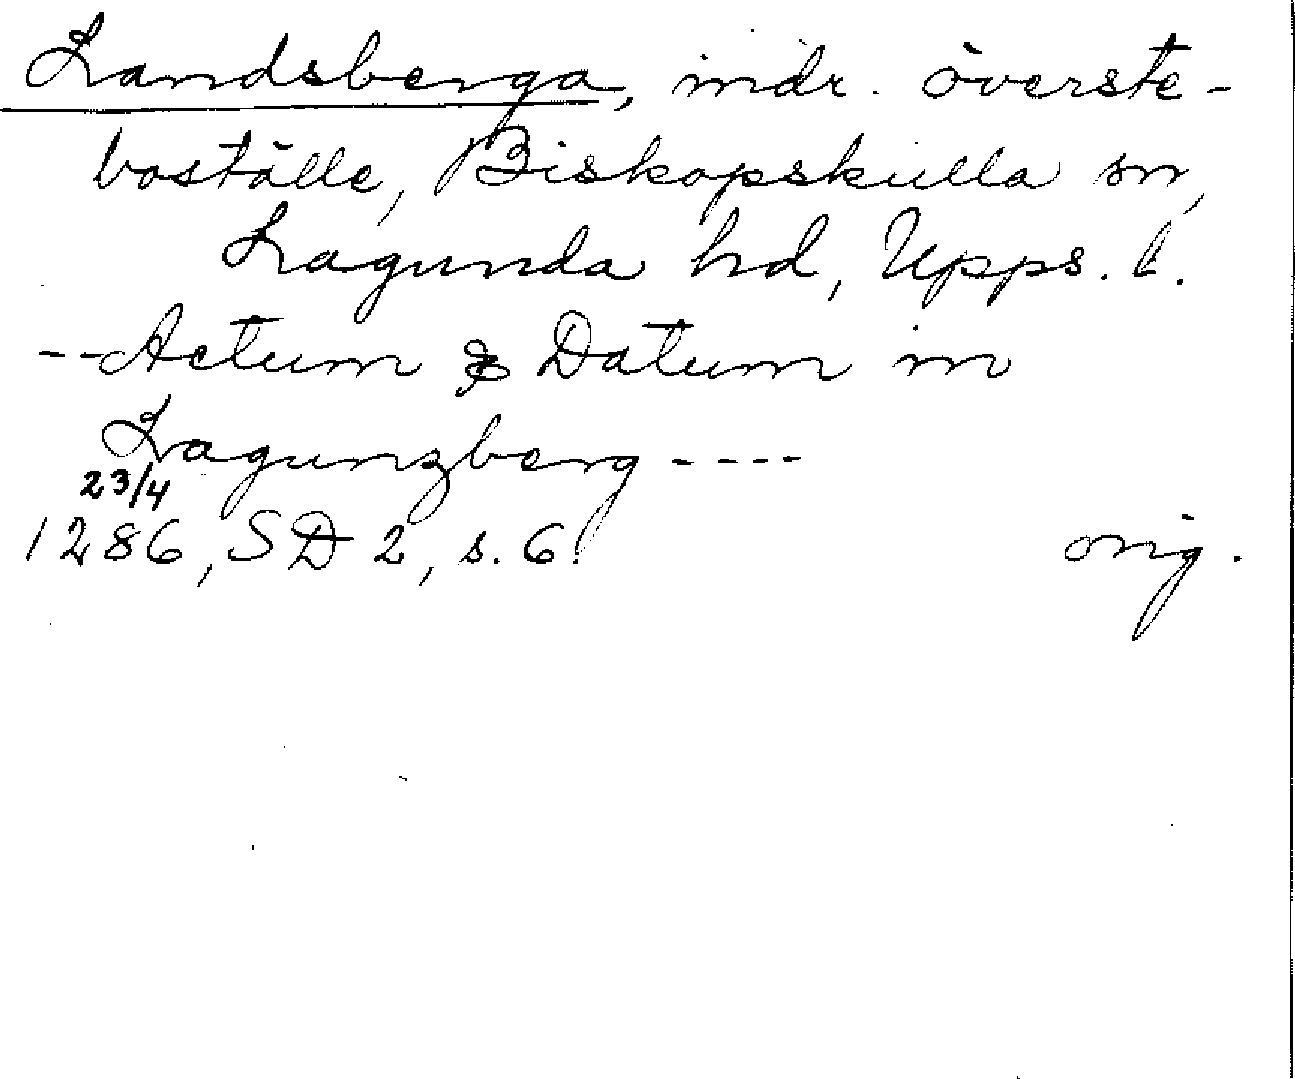 Landsberga, indr. överste-
boställe, Biskopskulla sn,
Lagunda hd, Upps. l.
--Actum & Datum in
Lagunzberg ----
23/4
1286, SD 2, s. 6. orig.